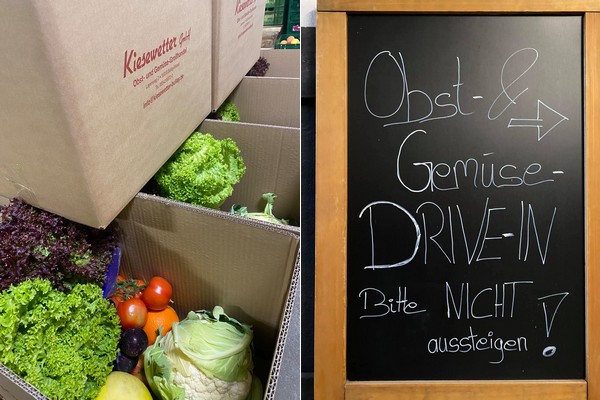 Kiesewetter GmbH
Obst- und Gemüse-Großhandel
Kiesewetter
Obst- &
Gemüse-
DRIVE-IN
Bitte NICHT
aussteigen!